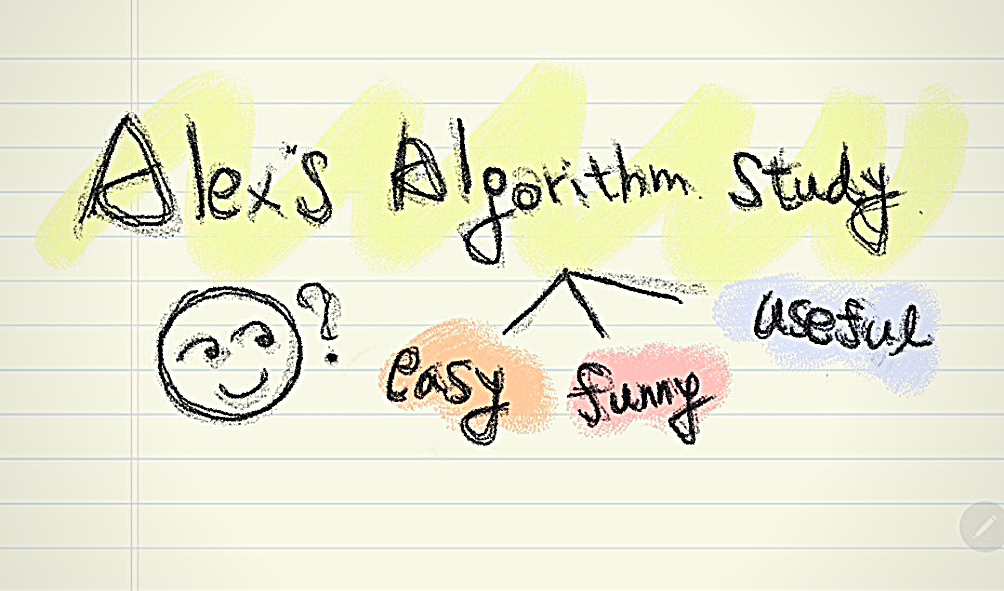 Alex's Algorithm Study
?
easy funny useful